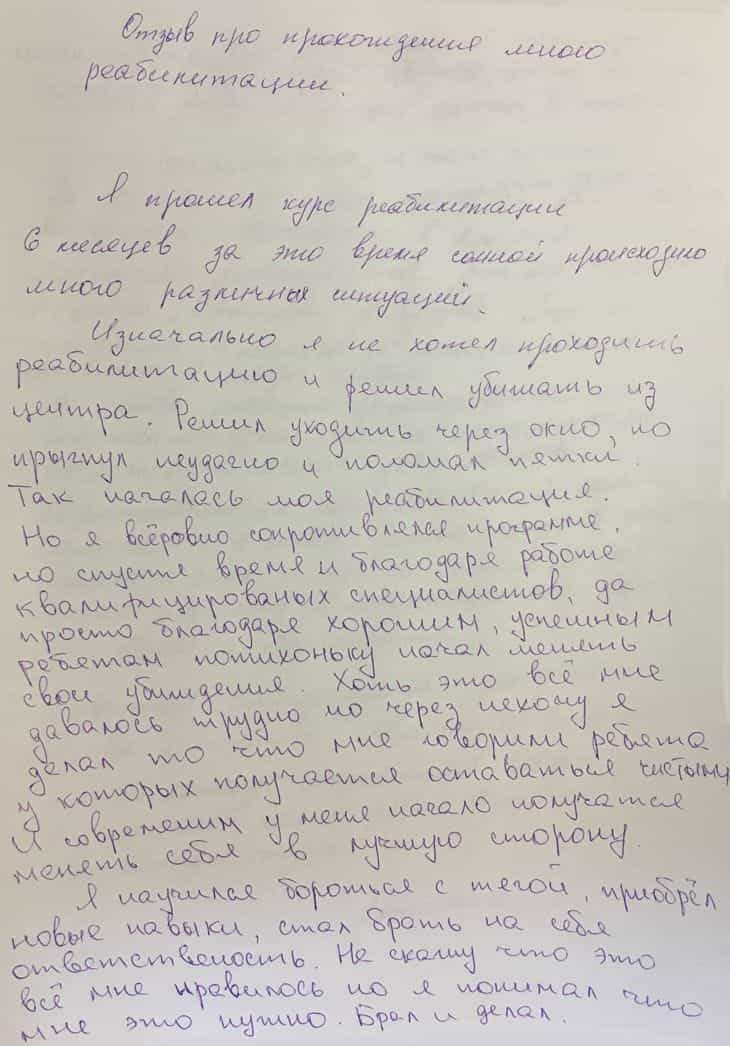 Отзыв про прохождения мною
реабилитации.
Я прошел курс реабилитации
6 месяцев за это время сомной происходило
много различных ситуаций.
Изначально я не хотел проходить
реабилитацию и решил убижать из
центра. Решил уходить через окно, но
прыгнул неудачно и поломал пятки.
Так началась моя реабилитация.
Но я всёровно сопротивлялся программе,
но спустя время и благодаря работе
квалифицированых специалистов, да
просто благодаря хорошим, успешным
ребятам потихоньку начал менять
свои убиждения. Хоть это всё мне
давалось трудно но через нехочу я
делал то что мне говорили ребята
у которых получается оставаться чистыми
И современим у меня начало получатся
менять себя в лучшую сторону.
Я научился бороться с тягой, приобрёл
новые навыки, стал брать на себя
ответственость. Не скажу что это
всё мне нравилось но я понимал что
мне это нужно. Брал и делал.